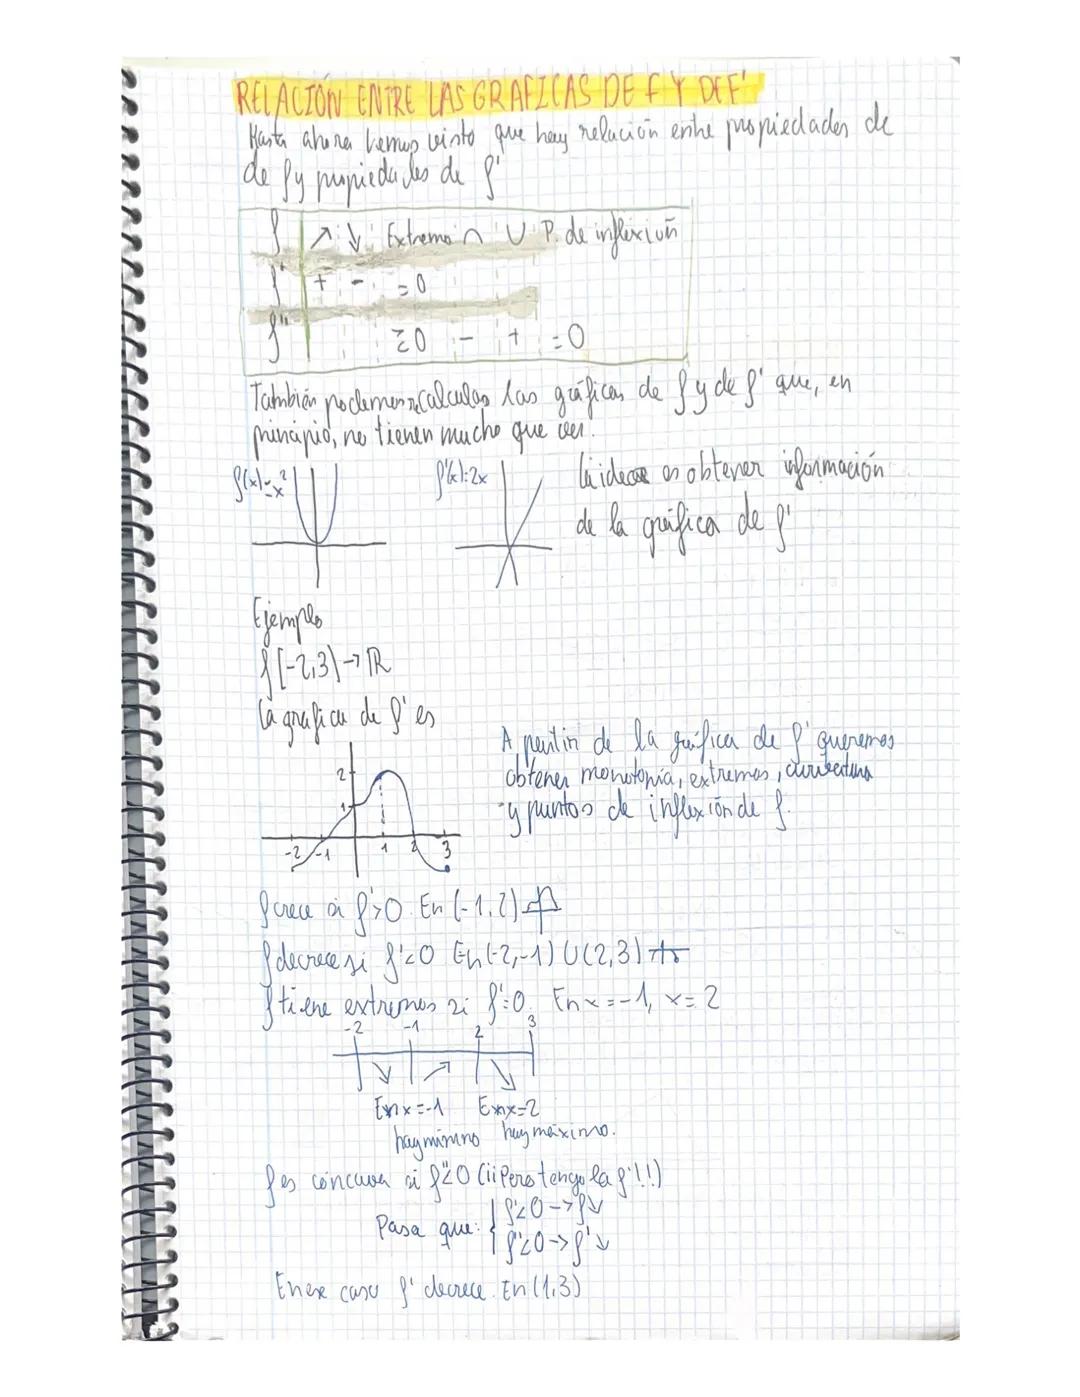 RELACIÓN ENTRE LAS GRAFICAS DE F Y DE F'
Hasta ahora hemos visto que hay relación entre propiedades de
de f y propiedades de f'
f ↗ ↘ Extremo ∩ ∪ P. de inflexión
f' + - =0
f'' ≷0 - + =0
También podemos calcular las gráficas de f y de f' que, en
principio, no tienen mucho que ver.
f(x)=x²
f'(x)=2x
La idea es obtener información
de la gráfica de f'
Ejemplo
f[-2,3)→ℝ
La grafica de f' es
A partir de la gráfica de f' queremos
obtener monotonía, extremos, curvatura
y puntos de inflexión de f.
2
1
-2 -1 1 2 3
f crece si f'>0. En (-1,2)
f decrece si f'<0 En (-2,-1)∪(2,3)
f tiene extremos si f'=0. En x=-1, x=2
-2 -1 2 3
↘ ↗ ↘
En x=-1 En x=2
hay mínimo hay máximo.
f es cóncava si f''<0 (¡¡Pero tengo la f'!!)
Pasa que: { f'<0→f↓
f''<0→f'↓
En ese caso f' decrece. En (1,3)